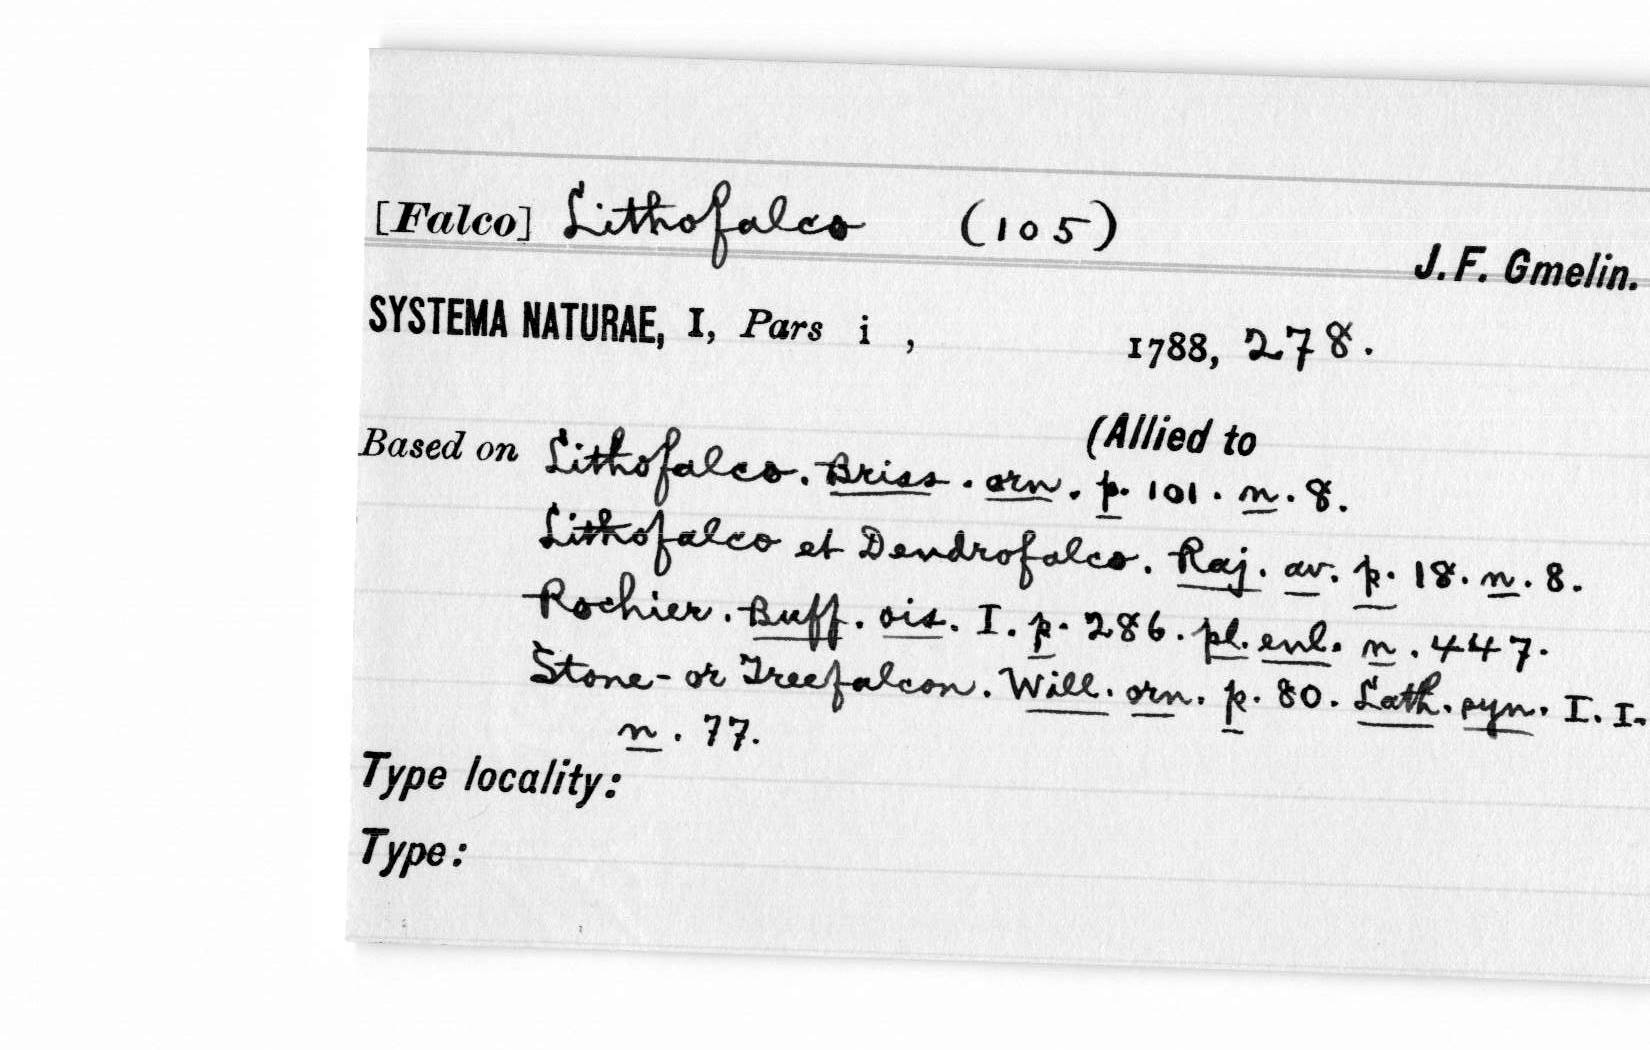 [Falco] Lithofalco (105)
J. F. Gmelin.
SYSTEMA NATURAE, I, Pars i , 1788, 278.
(Allied to
Based on Lithofalco. Briss. orn. p. 101. n. 8.
Lithofalco et Dendrofalco. Raj. av. p. 18. n. 8.
Rochier. Buff. ois. I. p. 286. pl. enl. n. 447.
Stone- or Treefalcon. Will. orn. p. 80. Lath. syn. I. I.
n. 77.
Type locality:
Type: